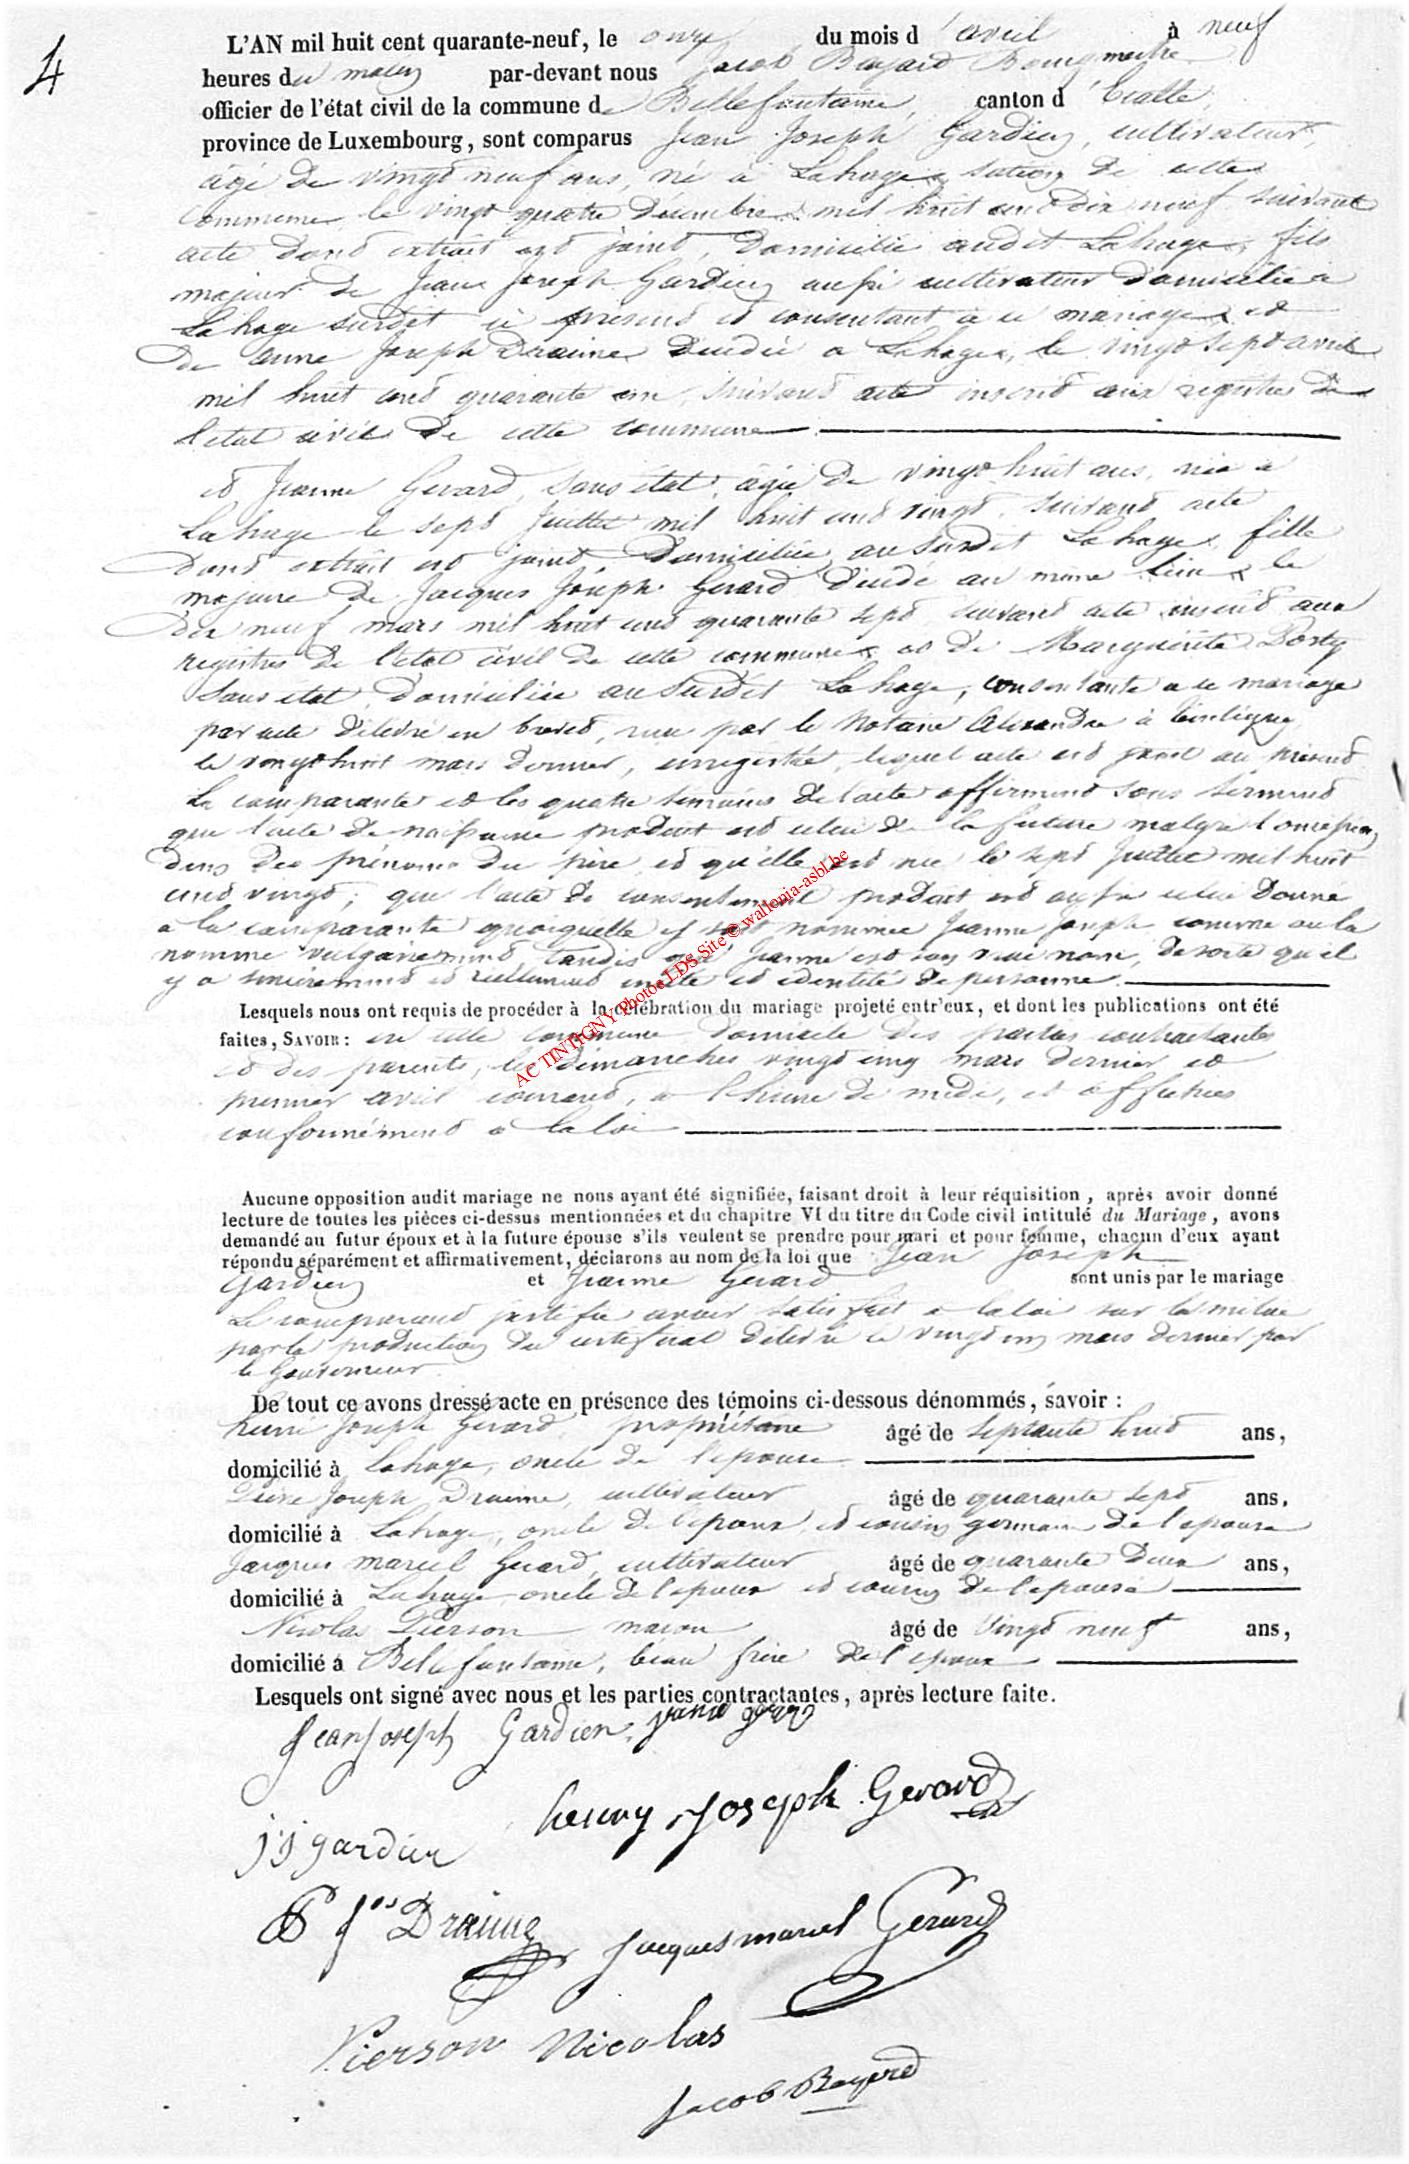 4
L'AN mil huit cent quarante-neuf, le onze du mois d'avril à neuf
heures du matin par-devant nous Jacob Bayard Bourgmestre
officier de l'état civil de la commune de Bellefontaine, canton d'Etalle,
province de Luxembourg, sont comparus Jean Joseph Gardien, cultivateur,
âgé de vingt neuf ans, né à Lahage, section de cette
commune le vingt quatre Décembre mil huit cent dix neuf suivant
acte dont extrait est joint, domicilié audit Lahage, fils
majeur de Jean Joseph Gardien aussi cultivateur domicilié à
Lahage susdit ici présent et consentant à ce mariage et
de Anne Joseph Draime décédée à Lahage, le vingt sept avril
mil huit cent quarante un, suivant acte inscrit aux registres de
l'état civil de cette commune
et Jeanne Gerard, sans état, âgée de vingt huit ans, née à
Lahage le sept Juillet mil huit cent vingt, suivant acte
dont extrait est joint, domiciliée au susdit Lahage, fille
majeure de Jacques Joseph Gerard décédé au même lieu le
dix neuf mars mil huit cent quarante sept suivant acte inscrit aux
registres de l'état civil de cette commune et de Marguerite
sans état, domiciliée au susdit Lahage, consentante à ce mariage
par acte délivré en brevet, reçu par le Notaire Alexandre à Tintigny
le vingt huit mars dernier, enregistré, lequel acte est joint au présent
La comparante et les quatre témoins de l'acte affirment sous serment
que l'acte de naissance produit est celui de la future malgré l'omission
dans des prénoms du père, et qu'elle est née le sept Juillet mil huit
cent vingt; que l'acte de consentement produit est aussi celui donné
à la comparante quoiquelle y soit nommée Jeanne Joseph comme on la
nomme vulgairement, tandis que Jeanne est son vrai nom, de sorte qu'il
y a sincèrement et réellement unité et identité de personne.
Lesquels nous ont requis de procéder à la célébration du mariage projeté entr'eux, et dont les publications ont été
faites, SAVOIR: en cette commune domicile des parties contractantes
et des parents, les dimanches vingt cinq mars dernier et
premier avril courant, à l'heure de midi, et affichées
conformément à la loi
Aucune opposition audit mariage ne nous ayant été signifiée, faisant droit à leur réquisition, après avoir donné
lecture de toutes les pièces ci-dessus mentionnées et du chapitre VI du titre du Code civil intitulé du Mariage, avons
demandé au futur époux et à la future épouse s'ils veulent se prendre pour mari et pour femme, chacun d'eux ayant
répondu séparément et affirmativement, déclarons au nom de la loi que Jean Joseph
Gardien et Jeanne Gerard sont unis par le mariage
Le comparant justifie avoir satisfait à la loi sur la milice
par la production du certificat délivré le vingt cinq mars dernier par
le Gouverneur.
De tout ce avons dressé acte en présence des témoins ci-dessous dénommés, savoir :
Henri Joseph Gerard, propriétaire âgé de septante huit ans,
domicilié à Lahage, oncle de l'épouse
Pierre Joseph Draime, cultivateur âgé de quarante sept ans,
domicilié à Lahage, oncle de l'époux et cousin germain de l'épouse
Jacques Marcel Gerard, cultivateur âgé de quarante deux ans,
domicilié à Lahage oncle de l'époux et cousin de l'épouse
Nicolas Pierson maçon âgé de vingt neuf ans,
domicilié à Bellefontaine, beau frère de l'époux
Lesquels ont signé avec nous et les parties contractantes, après lecture faite.
Jean Joseph Gardien
j j gardien
henry Joseph Gerard
P Jos Draime
Jacques marcel Gerard
Pierson Nicolas
Jacob Bayard
AC TINTIGNY Photos LDS Site © wallonia-asbl.be